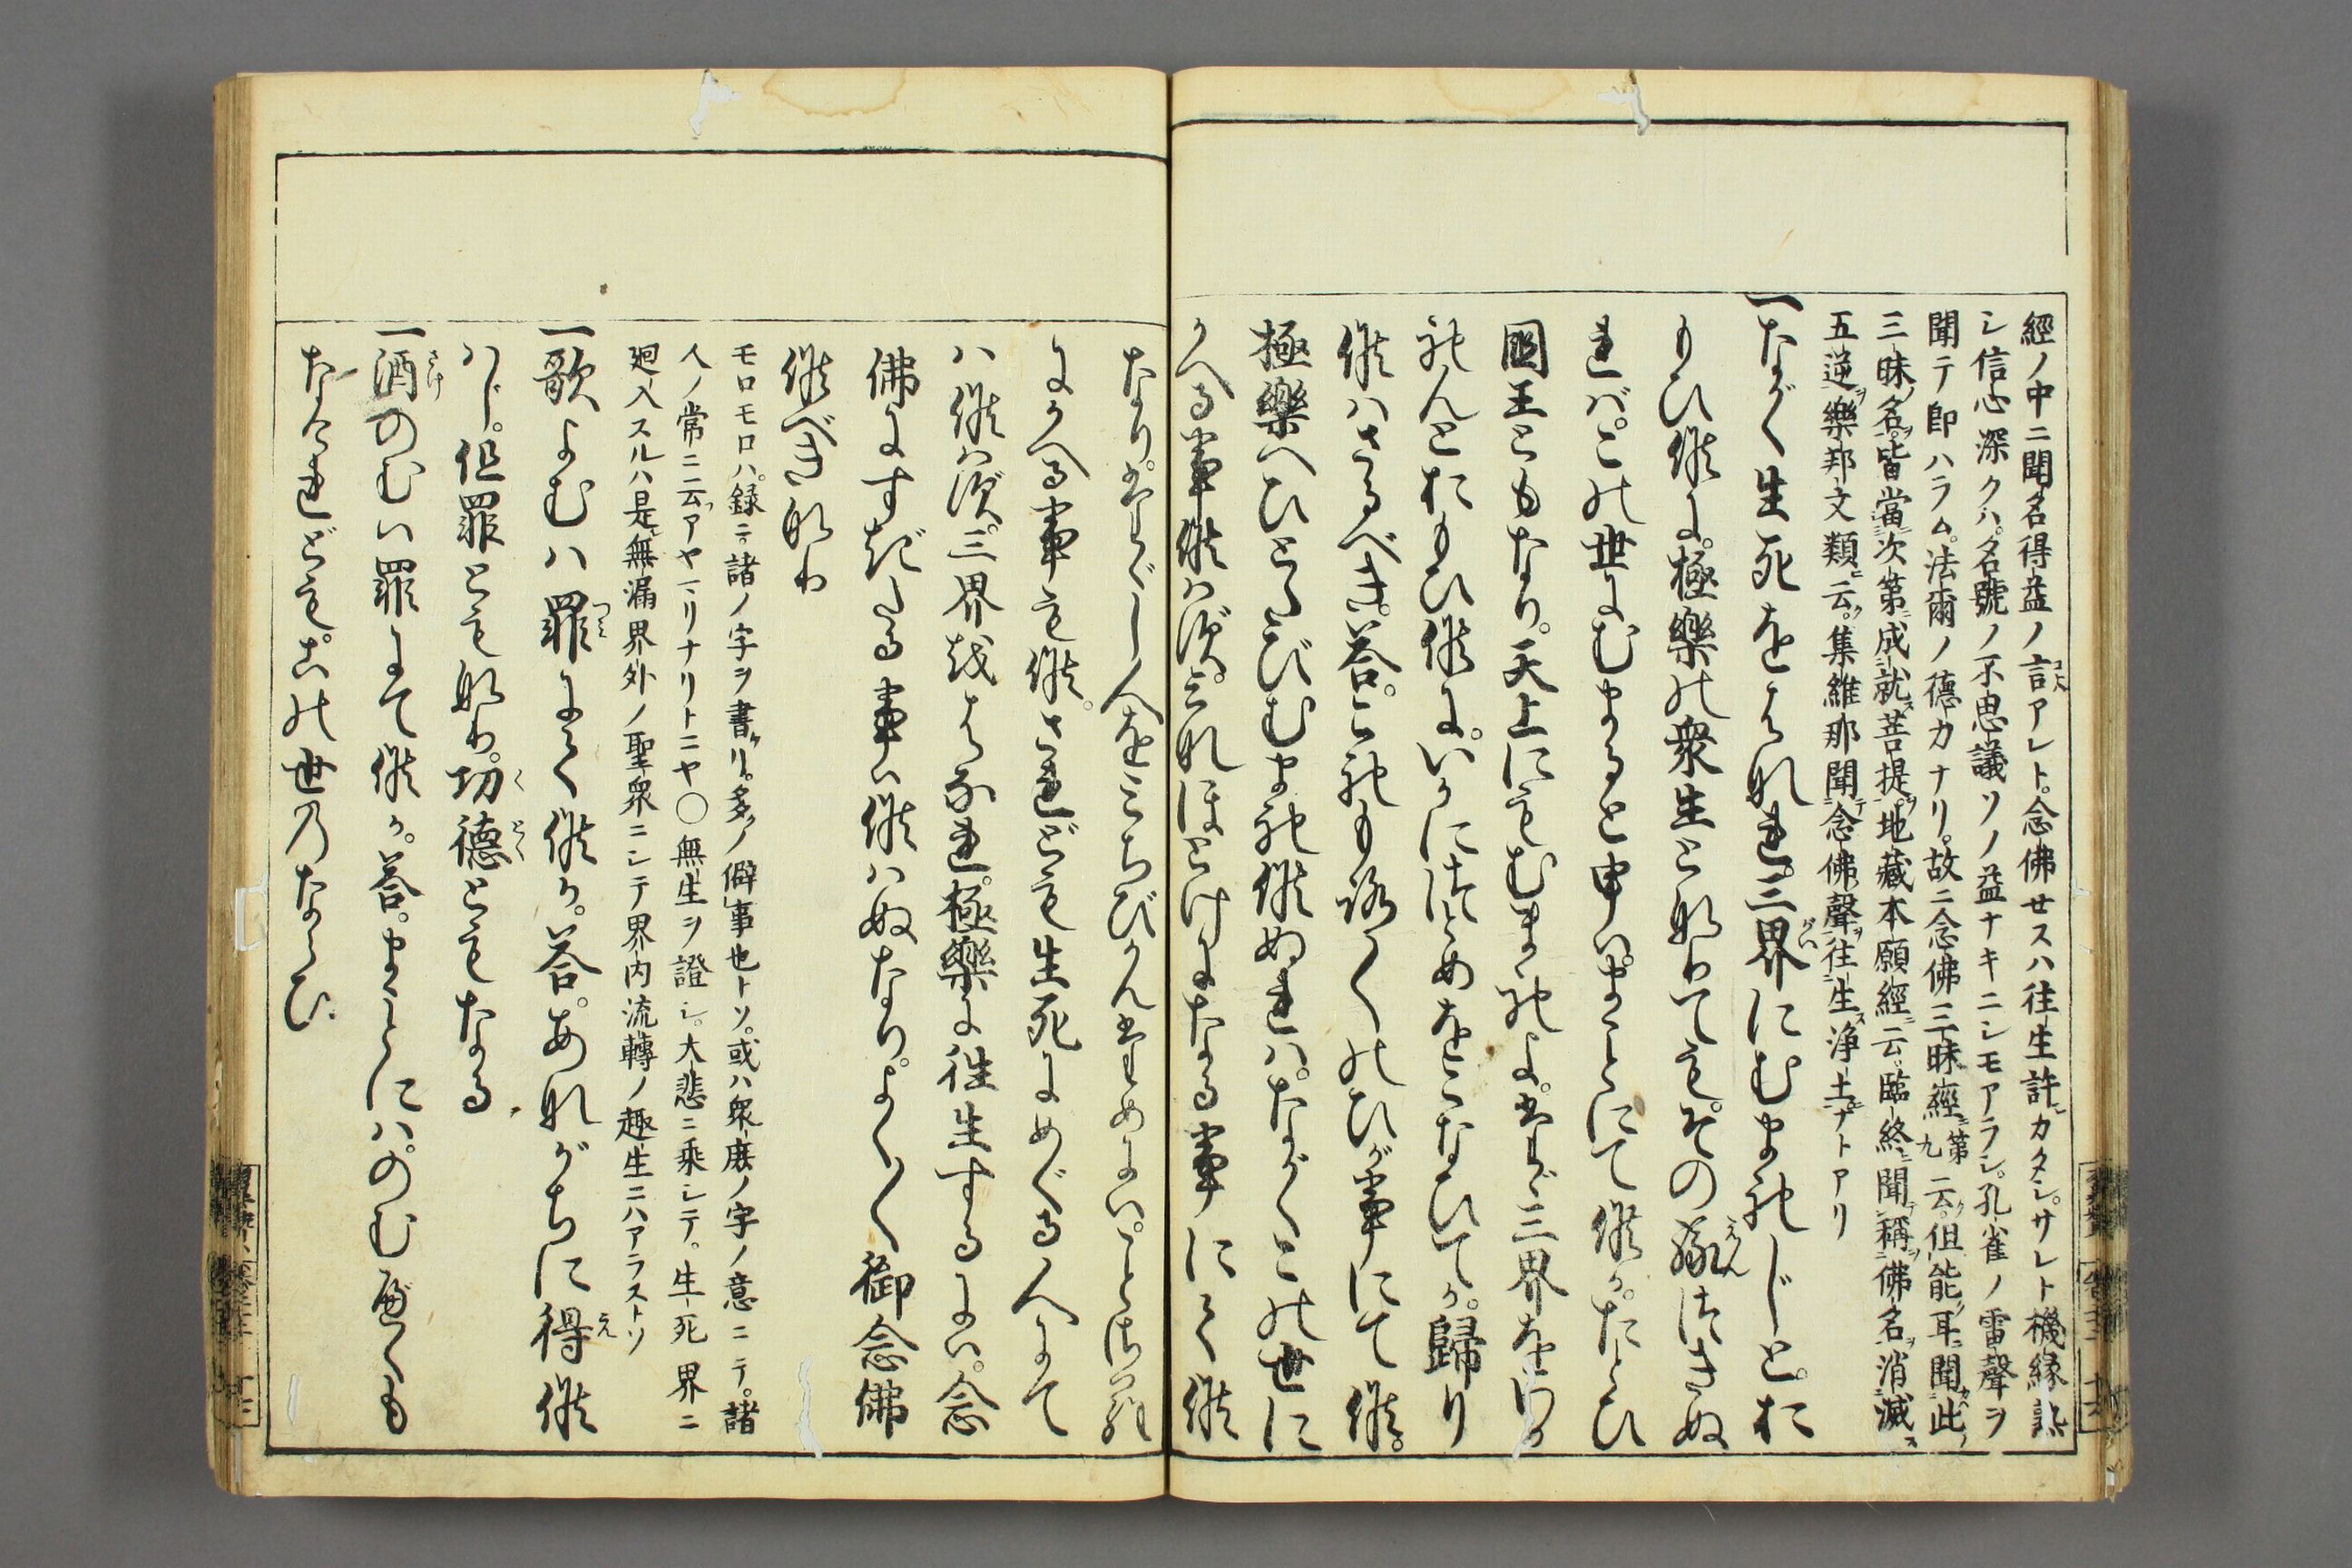 經ノ中ニ聞名得益ノ言アレト。念佛セスハ往生許カタシ。サレト機縁熟
シ信心深クハ。名號ノ不思議ソノ益ナキニシモアラシ。孔雀ノ雷聲ヲ
聞テ即ハラム。法爾ノ德カナリ。故ニ念佛三昧經第九云。但能耳聞此
三昧名。皆當次第成就菩提。地藏本願經云。臨終聞稱佛名消滅
五逆。樂邦文類云。集維那聞念佛聲往生淨土ナトアリ
一ながく生死をはなれ三界にむまれじと。お
もひ候に。極樂の衆生となりても。その縁つきぬ
れば。この世にむまると申は。まことにて候か。たとひ
國王ともなり。天上にもむまれよ。たゞ三界をわか
れんとおもひ候に。いかにつとめおこなひてか。歸り
候はさるべき。答。これもろ〳〵のひが事にて候。
極樂へひとたびむまれ候ぬれは。ながくこの世に
かへる事候はず。みなほとけになる事にて候
なり。たゞし人をみちびかんためには。ことさら
にかへる事も候。されども生死にめぐる人にて
は候はず。三界をはなれ極樂に往生するには。念
佛にすぎたる事は候はぬなり。よく〳〵御念佛
候べきなり
モロモロハ。録ニ。諸ノ字ヲ書ケリ。多ノ僻事也トソ。或ハ衆庶ノ字ノ意ニテ。諸
人ノ常ニ云アヤマリナリトニヤ〇無生ヲ證シ。大悲ニ乘シテ。生死界ニ
廻入スルハ是無漏界外ノ聖衆ニシテ界内流轉ノ趣生ニハアラストソ
一歌よむは罪にて候か。答。あながちに得候
はじ。但罪ともなり。功德ともなる
一酒のむは罪にて候か。答。まことには。のむべくも
なけれども。この世のならひ